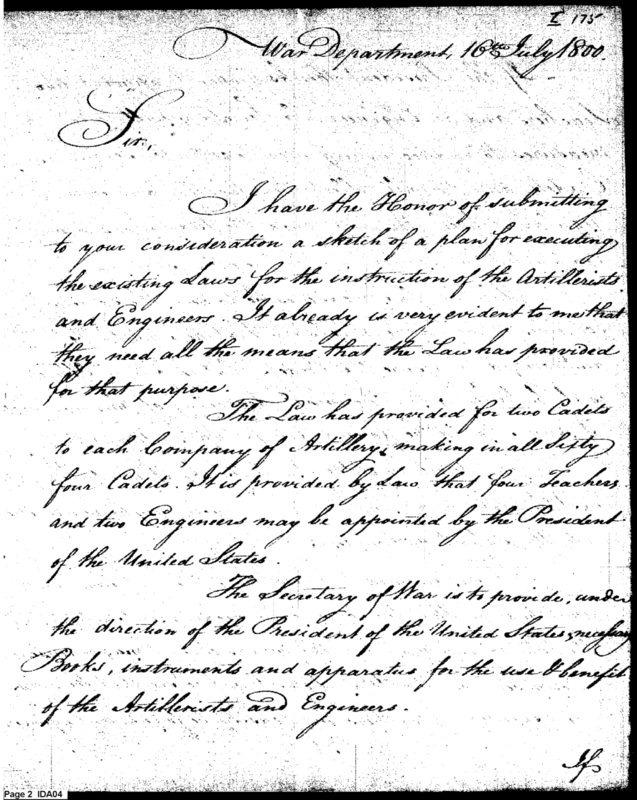 I 175
War Department, 16th July 1800.
Sir,
I have the Honor of submitting
to your consideration a sketch of a plan for executing
the existing Laws for the instruction of the Artillerists
and Engineers. It already is very evident to me that
they need all the means that the Law has provided
for that purpose.
The Law has provided for two Cadets
to each Company of Artillery, making in all Sixty
four Cadets. It is provided by Law that four Teachers
and two Engineers may be appointed by the President
of the United States.
The Secretary of War is to provide, under
the direction of the President of the United States, necessary
Books, instruments and apparatus for the use & benefit
of the Artillerists and Engineers.
If
Page 2 IDA04